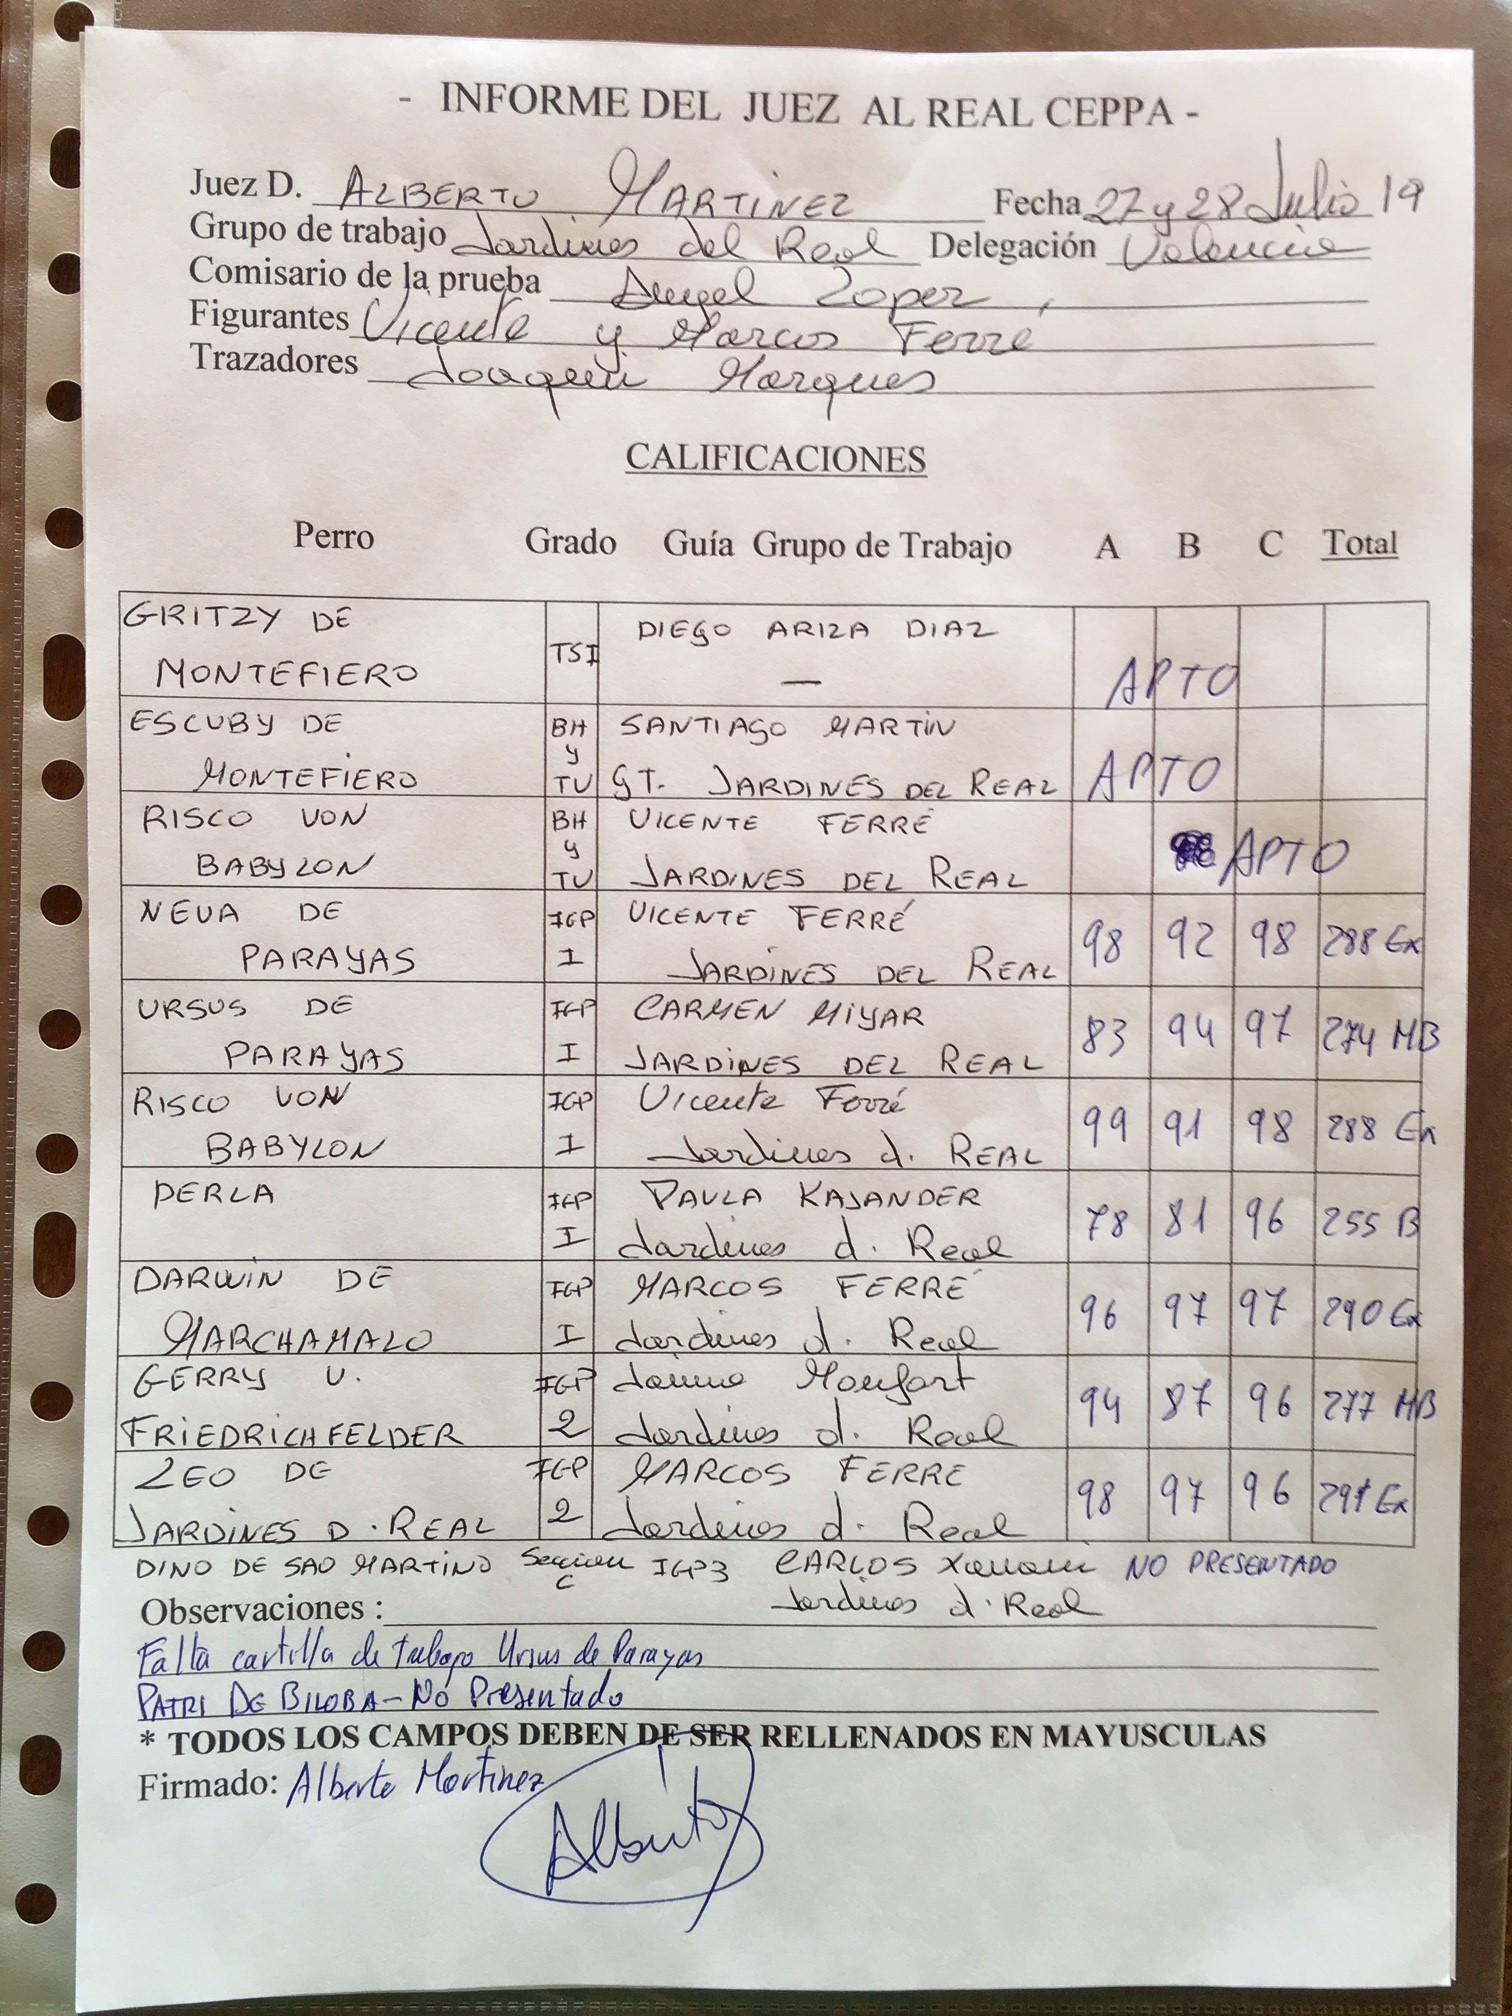 - INFORME DEL JUEZ AL REAL CEPPA -
Juez D. ALBERTO MARTINEZ Fecha 27 y 28 Julio 19
Grupo de trabajo Jardines del Real Delegación Valencia
Comisario de la prueba Angel Lopez
Figurantes Vicente y Marcos Ferre
Trazadores Joaquin Marques
CALIFICACIONES
Perro Grado Guía Grupo de Trabajo A B C Total
GRITZY DE DIEGO ARIZA DIAZ
MONTEFIERO TSI — APTO
ESCUBY DE BH SANTIAGO MARTIN
y
MONTEFIERO TU GT. JARDINES DEL REAL APTO
RISCO VON BH VICENTE FERRÉ
y APTO
BABYLON TU JARDINES DEL REAL
NEVA DE IGP VICENTE FERRÉ
PARAYAS I JARDINES DEL REAL 98 92 98 288 Ex
URSUS DE IGP CARMEN MIYAR
PARAYAS I JARDINES DEL REAL 83 94 97 274 MB
RISCO VON IGP Vicente Ferré
BABYLON I Jardines d. REAL 99 91 98 288 Ex
PERLA IGP PAULA KAJANDER
I Jardines d. Real 78 81 96 255 B
DARWIN DE IGP MARCOS FERRE
MARCHAMALO I Jardines d. Real 96 97 97 290 Ex
GERRY V. IGP Monfort
FRIEDRICHFELDER 2 Jardines d. Real 94 87 96 277 MB
LEO DE IGP MARCOS FERRE
JARDINES D. REAL 2 Jardines d. Real 98 97 96 291 Ex
DINO DE SAO MARTINO Seccion C IGP3 CARLOS NO PRESENTADO
Jardines d. Real
Observaciones :
Falta cartilla de trabajo Ursus de Parayas
PATRI DE BILOBA - No Presentado
* TODOS LOS CAMPOS DEBEN DE SER RELLENADOS EN MAYUSCULAS
Firmado: Alberto Martinez
Alberto